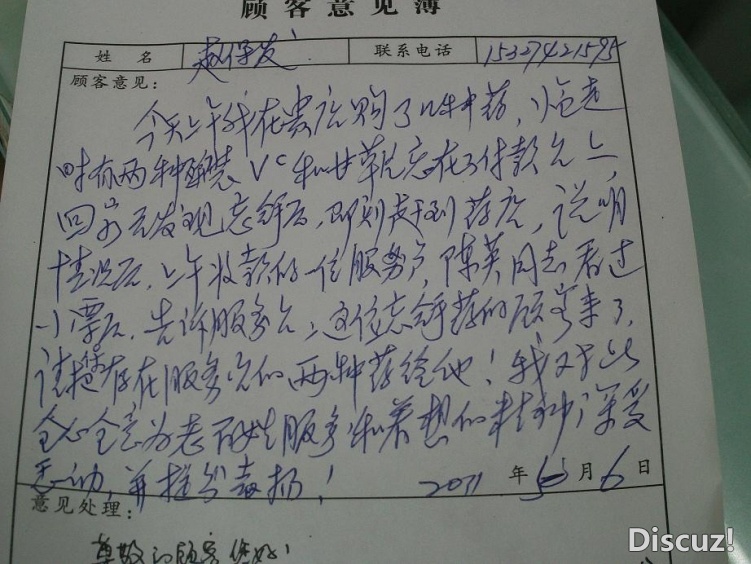 顾客意见簿
姓名 赵保发 联系电话 15327421595
顾客意见：
今天上午我在贵店购了几种中药，临走
时有两种瓶装VC和甘草片忘在了付款台上，
回家后发现忘拿后，即刻赶到药店，说明
情况后，上午收款的一位服务员陈英同志看过
小票后，告诉服务台：这位忘拿药的顾客来了，
请把存在服务台的两种药给他！我对此
全心全意为老百姓服务和着想的精神深受
感动，并提出表扬！
2011年 月6日
意见处理：
尊敬的顾客您好！
Discuz!